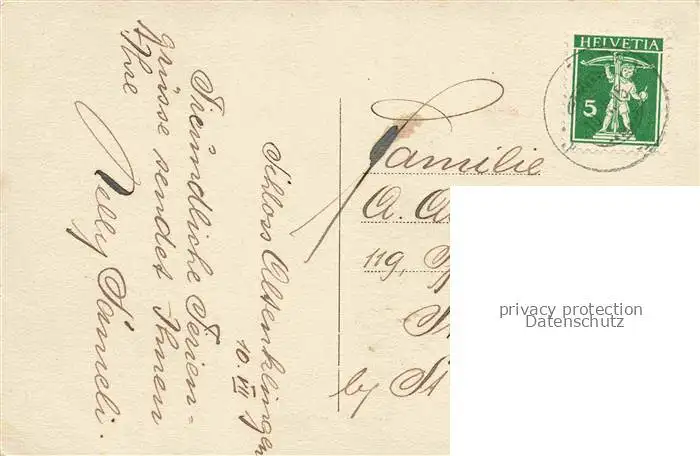 Schloss Altenklingen
10. VII
Freundliche Ferien-
grüsse sendet Ihnen
Ihre
Nelly
HELVETIA
5
Familie
A.
119,
by St
privacy protection
Datenschutz